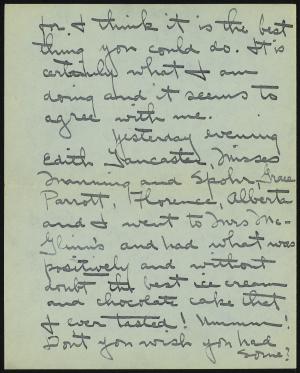 for I think it is the best
thing you could do. It is
certainly what I am
doing and it seems to
agree with me.
Yesterday evening
Edith Lancaster, Misses
Manning and Spohr, Grace
Parrott, Florence, Alberta
and I went to Mrs Mc-
Glinn's and had what was
positively and without
doubt the best ice cream
and chocolate cake that
I ever tasted! Ummum!
Don't you wish you had
some?